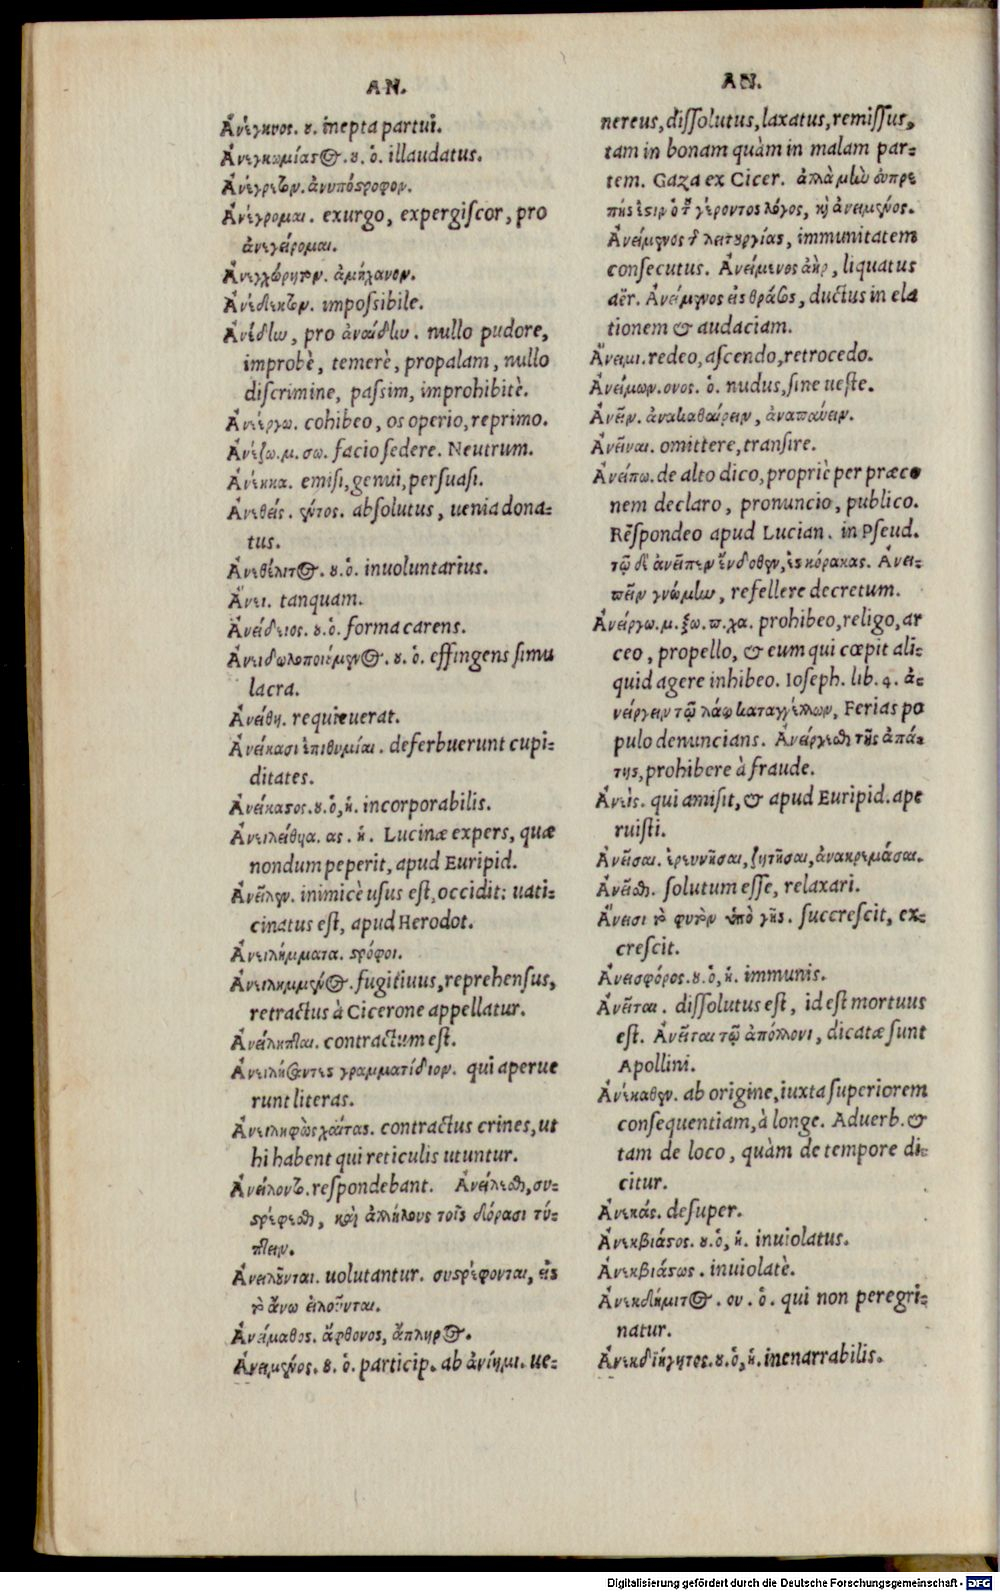 AN.
Ἀνέγκυος. ου. inepta partui.
Ἀνεγκωμίαστος. ου. ὁ. illaudatus.
Ἀνέγρετον. ἀνυπόστροφον.
Ἀνέγρομαι. exurgo, expergiscor, pro
ἀνεγείρομαι.
Ἀνεγχώρητον. ἀμήχανον.
Ἀνέδεκτον. impossibile.
Ἀνέδην, pro ἀναίδην. nullo pudore,
improbè, temerè, propalam, nullo
discrimine, passim, improhibitè.
Ἀνέεργω. cohibeo, os operio, reprimo.
Ἀνέζω. μ. σω. facio sedere. Neutrum.
Ἀνέηκα. emisi, genui, persuasi.
Ἀνεθείς. έντος. absolutus, uenia dona-
tus.
Ἀνεθέλητος. ου. ὁ. inuoluntarius.
Ἄνει. tanquam.
Ἀνείδεος. ου. ὁ. forma carens.
Ἀνειδωλοποιούμενος. ου. ὁ. effingens simu
lacra.
Ἀνείθη. requieuerat.
Ἀνείκασι ἐπιθυμίαι. deferbuerunt cupi-
ditates.
Ἀνείκαστος. ου. ὁ, ἡ. incorporabilis.
Ἀνειλείθυα. ας. ἡ. Lucinæ expers, quæ
nondum peperit, apud Euripid.
Ἀνεῖλεν. inimicè usus est, occidit: uati-
cinatus est, apud Herodot.
Ἀνειλήμματα. στρόφοι.
Ἀνειλημμένος. fugitiuus, reprehensus,
retractus à Cicerone appellatur.
Ἀνείληπται. contractum est.
Ἀνειλήσαντες γραμματίδιον. qui aperue
runt literas.
Ἀνειληφὼς χαίτας. contractus crines, ut
hi habent qui reticulis utuntur.
Ἀνείλοντο. respondebant. Ἀνείλεσθαι, συ-
στρέφεσθαι, καὶ ἀλλήλους τοῖς δόρασι τύ-
πτειν.
Ἀνειλοῦνται. uolutantur. συστρέφονται, εἰς
τὸ ἄνω εἰλοῦνται.
Ἀνείμαθος. ἄφθονος, ἄπληρος.
Ἀνειμένος. ου. ὁ. particip. ab ἀνίημι. ue-
AN.
nereus, dissolutus, laxatus, remissus,
tam in bonam quàm in malam par-
tem. Gaza ex Cicer. ἀλλὰ μὴν εὐπρε
πής ἐστιν ὁ τοῦ γέροντος λόγος, καὶ ἀνειμένος.
Ἀνείμενος τῆς λειτουργίας, immunitatem
consecutus. Ἀνείμενος ἀὴρ, liquatus
aër. Ἀνείμενος εἰς θράσος, ductus in ela
tionem & audaciam.
Ἄνειμι. redeo, ascendo, retrocedo.
Ἀνείμων. ονος. ὁ. nudus, sine ueste.
Ἀνεῖν. ἀνακαθαίρειν, ἀναπαύειν.
Ἀνεῖναι. omittere, transire.
Ἀνείπω. de alto dico, propriè per præco
nem declaro, pronuncio, publico.
Respondeo apud Lucian. in Pseud.
τῷ δὲ ἀνεῖπεν ἔνδοθεν, ἐς κόρακας. Ἀνει-
πεῖν γνώμην, refellere decretum.
Ἀνείργω. μ. ξω. π. χα. prohibeo, religo, ar
ceo, propello, & eum qui cœpit ali-
quid agere inhibeo. Ioseph. lib. 4. ἀ-
νείργειν τῷ λάῳ καταγγέλλων, Ferias po
pulo denuncians. Ἀνείργεσθαι τῆς ἀπά-
της, prohibere à fraude.
Ἀνεὶς. qui amisit, & apud Euripid. ape
ruisti.
Ἀνεῖσαι. ἐρευνῆσαι, ζητῆσαι, ἀνακρεμάσαι.
Ἀνεῖσθαι. solutum esse, relaxari.
Ἄνεισι τὸ φυτὸν ὑπὸ γῆς. succrescit, ex-
crescit.
Ἀνεισφόρος. ου. ὁ, ἡ. immunis.
Ἀνεῖται. dissolutus est, id est mortuus
est. Ἀνεῖται τῷ ἀπόλλονι, dicatæ sunt
Apollini.
Ἀνέκαθεν. ab origine, iuxta superiorem
consequentiam, à longe. Aduerb. &
tam de loco, quàm de tempore di-
citur.
Ἀνεκάς. desuper.
Ἀνεκβιάστος. ου. ὁ, ἡ. inuiolatus.
Ἀνεκβιάστως. inuiolatè.
Ἀνεκδήμητος. ου. ὁ. qui non peregri-
natur.
Ἀνεκδιήγητος. ου. ὁ, ἡ. inenarrabilis.
Digitalisierung gefördert durch die Deutsche Forschungsgemeinschaft - DFG